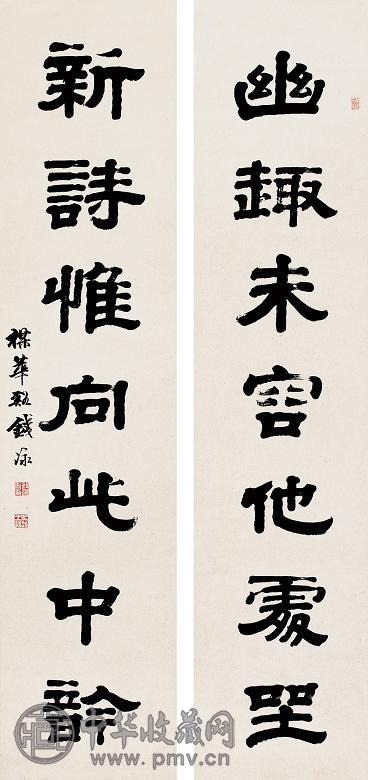 幽趣未容他處坐
新詩惟向此中訡
楳華谿錢泳
中华收藏网
www.pmv.cn